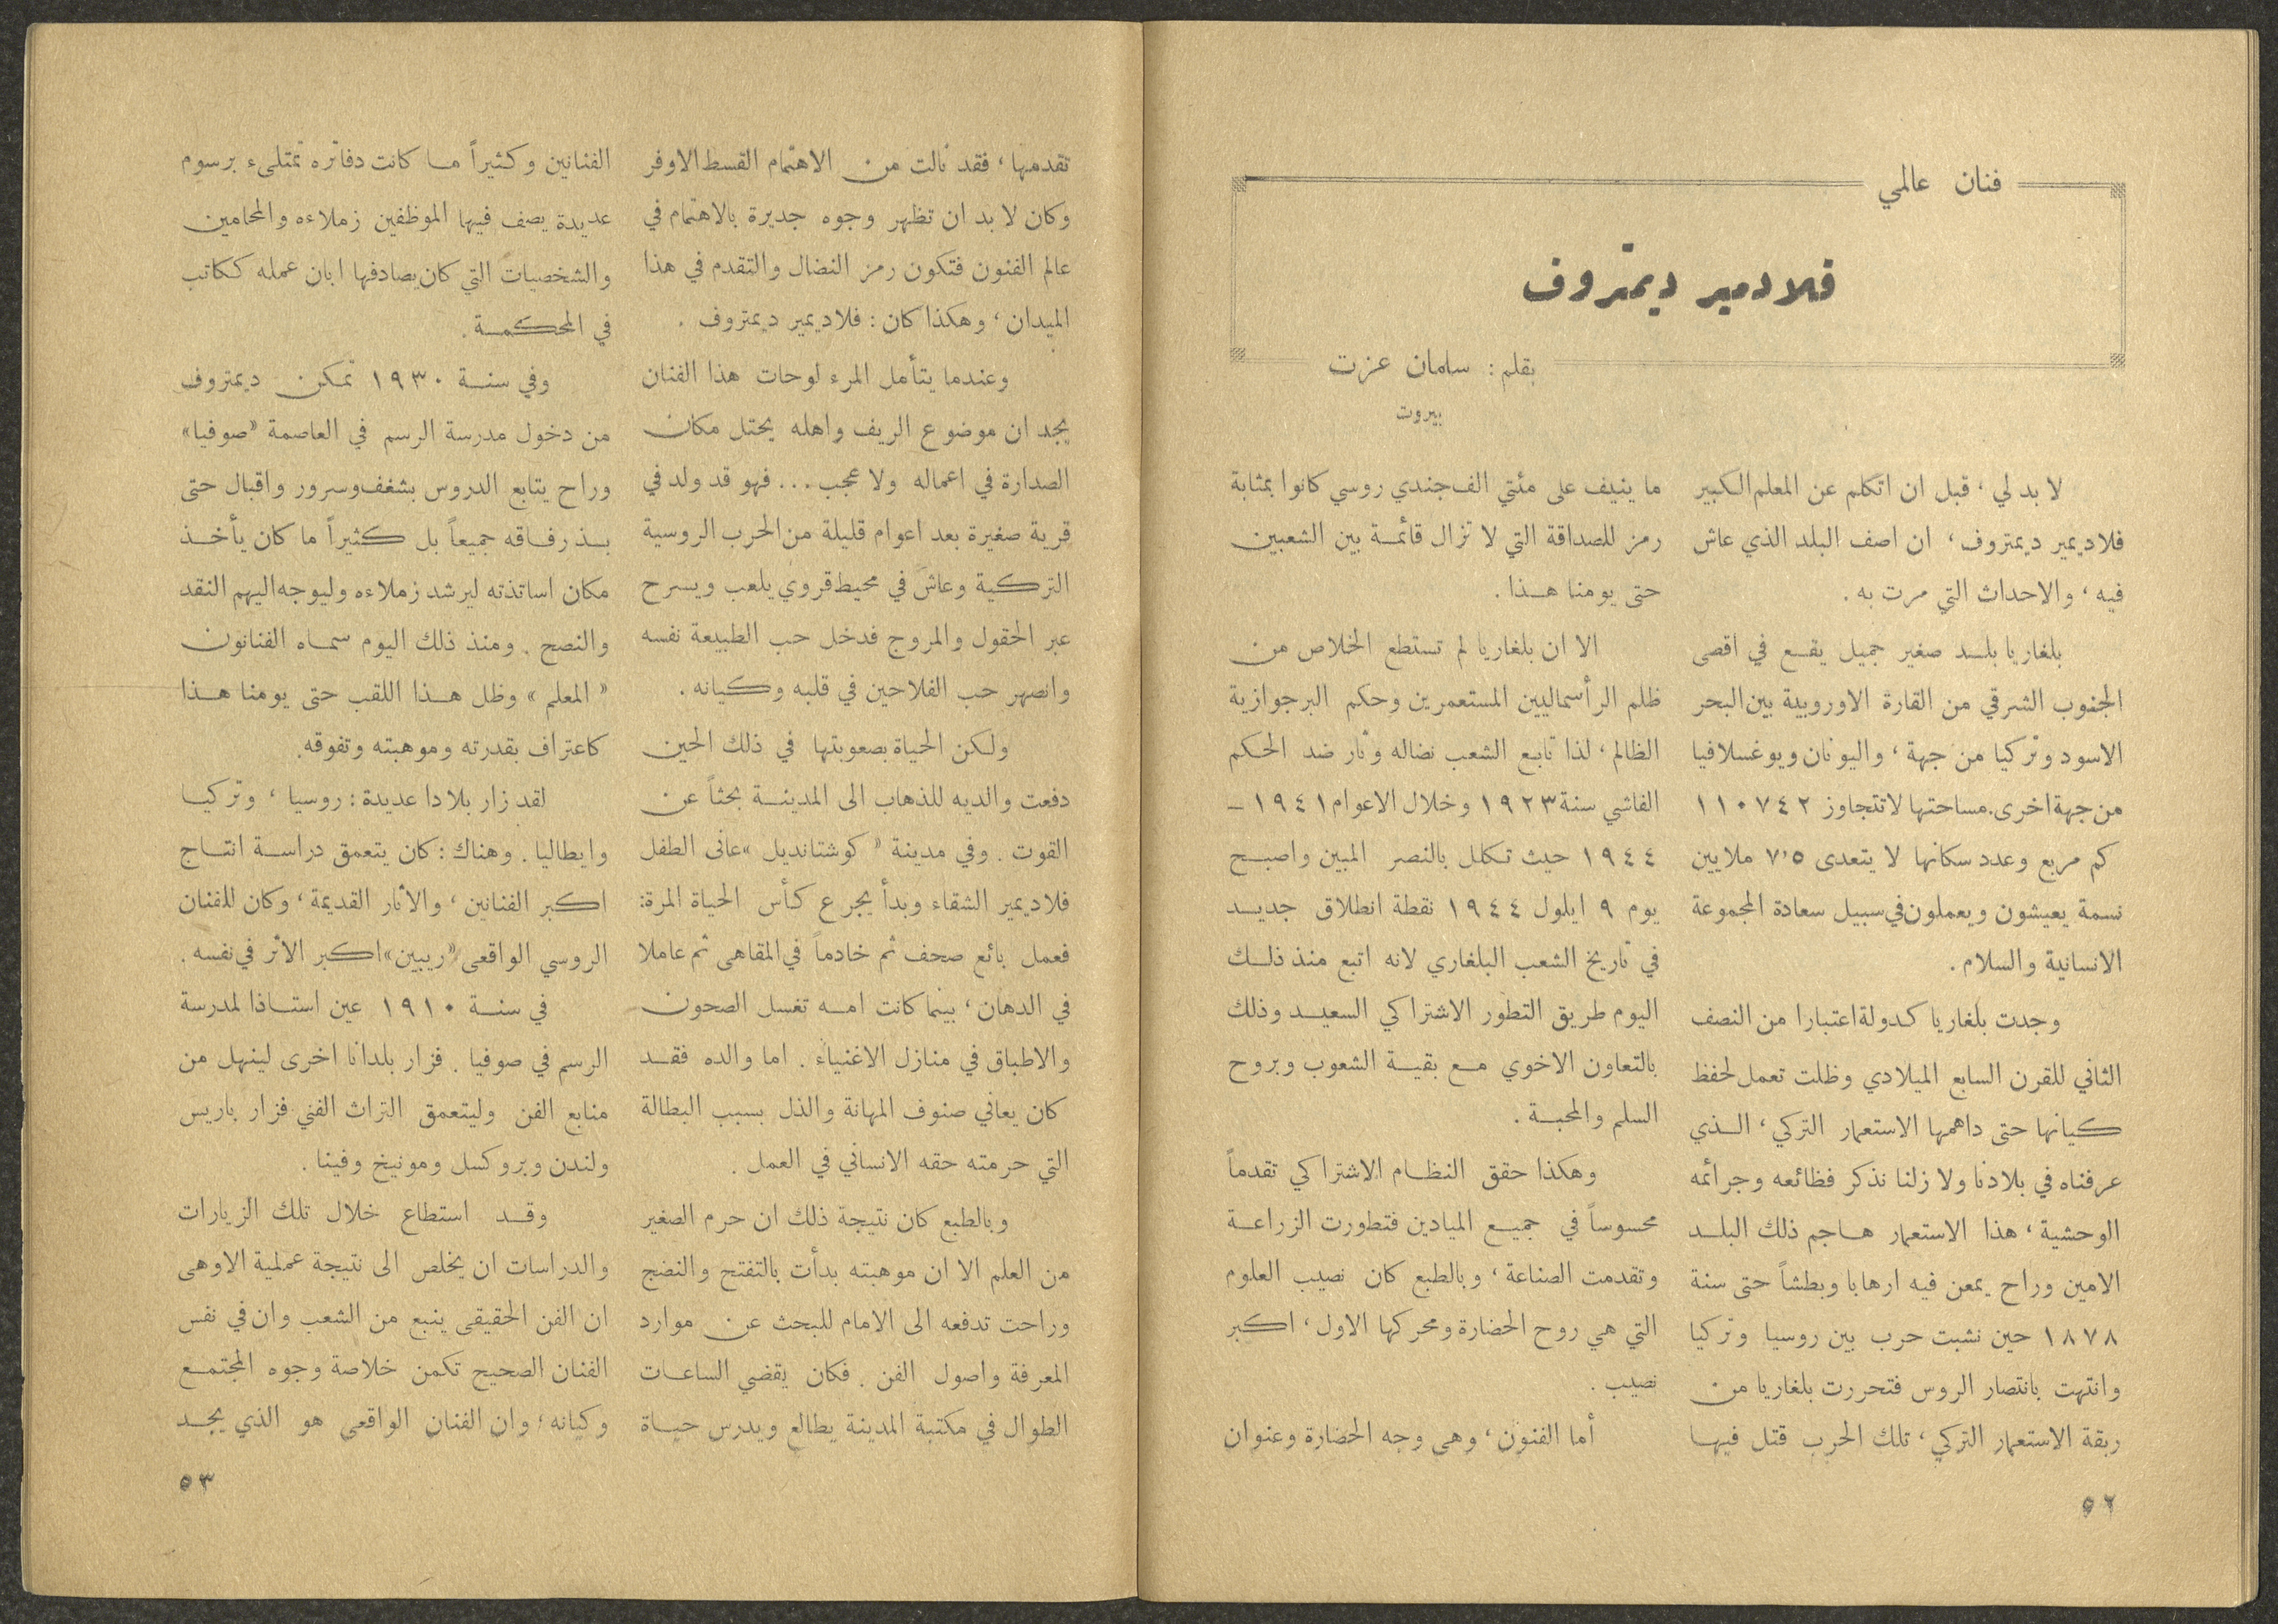 فنان عالمي
فلادمير ديمتروف
بقلم : سامان عزت
بيروت
لا بد لي ، قبل ان اتكلم عن المعلم الكبير
فلاديمير ديمتروف ، ان اصف البلد الذي عاش
فيه ، والاحداث التي مرت به .
بلغاريا بلد صغير جميل يقع في اقصى
الجنوب الشرقي من القارة الاوروبية بين البحر
الاسود وتركيا من جهة ، واليونان ويوغسلافيا
من جهة اخرى . مساحتها لا تتجاوز ١١٠٧٤٢
كم مربع وعدد سكانها لا يتعدى ٧،٥ ملايين
نسمة يعيشون ويعملون في سبيل سعادة المجموعة
الانسانية والسلام .
وجدت بلغاريا كدولة اعتبارا من النصف
الثاني للقرن السابع الميلادي وظلت تعمل لحفظ
كيانها حتى داهمها الاستعمار التركي ، الذي
عرفناه في بلادنا ولا زلنا نذكر فظائعه وجرائمه
الوحشية ، هذا الاستعمار هاجم ذلك البلد
الامين وراح يمعن فيه ارهابا وبطشاً حتى سنة
١٨٧٨ حين نشبت حرب بين روسيا وتركيا
وانتهت بانتصار الروس فتحررت بلغاريا من
ربقة الاستعمار التركي ، تلك الحرب قتل فيها
ما ينيف على مئتي الف جندي روسي كانوا بمثابة
رمز للصداقة التي لا تزال قائمة بين الشعبين
حتى يومنا هذا .
الا ان بلغاريا لم تستطع الخلاص من
ظلم الرأسماليين المستعمرين وحكم البرجوازية
الظالم ، لذا تابع الشعب نضاله وثار ضد الحكم
الفاشي سنة ١٩٢٣ وخلال الاعوام ١٩٤١ –
١٩٤٤ حيث تكلل بالنصر المبين واصبح
يوم ٩ ايلول ١٩٤٤ نقطة انطلاق جديد
في تاريخ الشعب البلغاري لانه اتبع منذ ذلك
اليوم طريق التطور الاشتراكي السعيد وذلك
بالتعاون الاخوي مع بقية الشعوب وبروح
السلم والمحبة .
وهكذا حقق النظام الاشتراكي تقدماً
محسوساً في جميع الميادين فتطورت الزراعة
وتقدمت الصناعة ، وبالطبع كان نصيب العلوم
التي هي روح الحضارة ومحركها الاول ، اكبر
نصيب .
أما الفنون ، وهي وجه الحضارة وعنوان
٥٢
تقدمها ، فقد نالت من الاهتمام القسط الاوفر
وكان لا بد ان تظهر وجوه جديرة بالاهتمام في
عالم الفنون فتكون رمز النضال والتقدم في هذا
الميدان ، وهكذا كان : فلاديمير ديمتروف .
وعندما يتأمل المرء لوحات هذا الفنان
يجد ان موضوع الريف واهله يحتل مكان
الصدارة في اعماله ولا عجب ... فهو قد ولد في
قرية صغيرة بعد اعوام قليلة من الحرب الروسية
التركية وعاش في محيط قروي يلعب ويسرح
عبر الحقول والمروج فدخل حب الطبيعة نفسه
وانصهر حب الفلاحين في قلبه وكيانه .
ولكن الحياة بصعوبتها في ذلك الحين
دفعت والديه للذهاب الى المدينة بحثاً عن
القوت . وفي مدينة « كوشتانديل » عانى الطفل
فلاديمير الشقاء وبدأ يجرع كأس الحياة المرة :
فعمل بائع صحف ثم خادماً في المقاهى ثم عاملا
في الدهان ، بينما كانت امه تغسل الصحون
والاطباق في منازل الاغنياء . اما والده فقد
كان يعاني صنوف المهانة والذل بسبب البطالة
التي حرمته حقه الانساني في العمل .
وبالطبع كان نتيجة ذلك ان حرم الصغير
من العلم الا ان موهبته بدأت بالتفتح والنضج
وراحت تدفعه الى الامام للبحث عن موارد
المعرفة واصول الفن . فكان يقضي الساعات
الطوال في مكتبة المدينة يطالع ويدرس حياة
الفنانين وكثيراً ما كانت دفاتره تمتلىء برسوم
عديدة يصف فيها الموظفين زملاءه والمحامين
والشخصيات التي كان يصادفها ابان عمله ككاتب
في المحكمة .
وفي سنة ١٩٣٠ تمكن ديمتروف
من دخول مدرسة الرسم في العاصمة «صوفيا»
وراح يتابع الدروس بشغف وسرور واقبال حتى
بذ رفاقه جميعاً بل كثيراً ما كان يأخذ
مكان اساتذته ليرشد زملاءه وليوجه اليهم النقد
والنصح . ومنذ ذلك اليوم سماه الفنانون
« المعلم » وظل هذا اللقب حتى يومنا هذا
كاعتراف بقدرته وموهبته وتفوقه .
لقد زار بلادا عديدة : روسيا ، وتركيا
وايطاليا . وهناك : كان يتعمق دراسة انتاج
اكبر الفنانين ، والآثار القديمة ، وكان للفنان
الروسي الواقعى «ريبين» اكبر الأثر في نفسه .
في سنة ١٩١٠ عين استاذا لمدرسة
الرسم في صوفيا . فزار بلدانا اخرى لينهل من
منابع الفن وليتعمق التراث الفني فزار باريس
ولندن وبروكسل ومونيخ وفينا .
وقد استطاع خلال تلك الزيارات
والدراسات ان يخلص الى نتيجة عملية الاوهى
ان الفن الحقيقى ينبع من الشعب وان في نفس
الفنان الصحيح تكمن خلاصة وجوه المجتمع
وكيانه ؛ وان الفنان الواقعى هو الذي يجد
٥٣